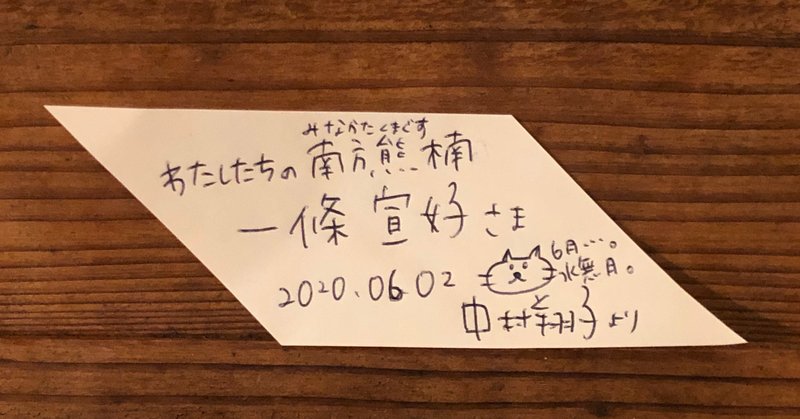 みなかたくまぐす
わたしたちの 南方熊楠
一條 宣好さま
6月…。
水無月。
2020.06.02
と
中村翔子より